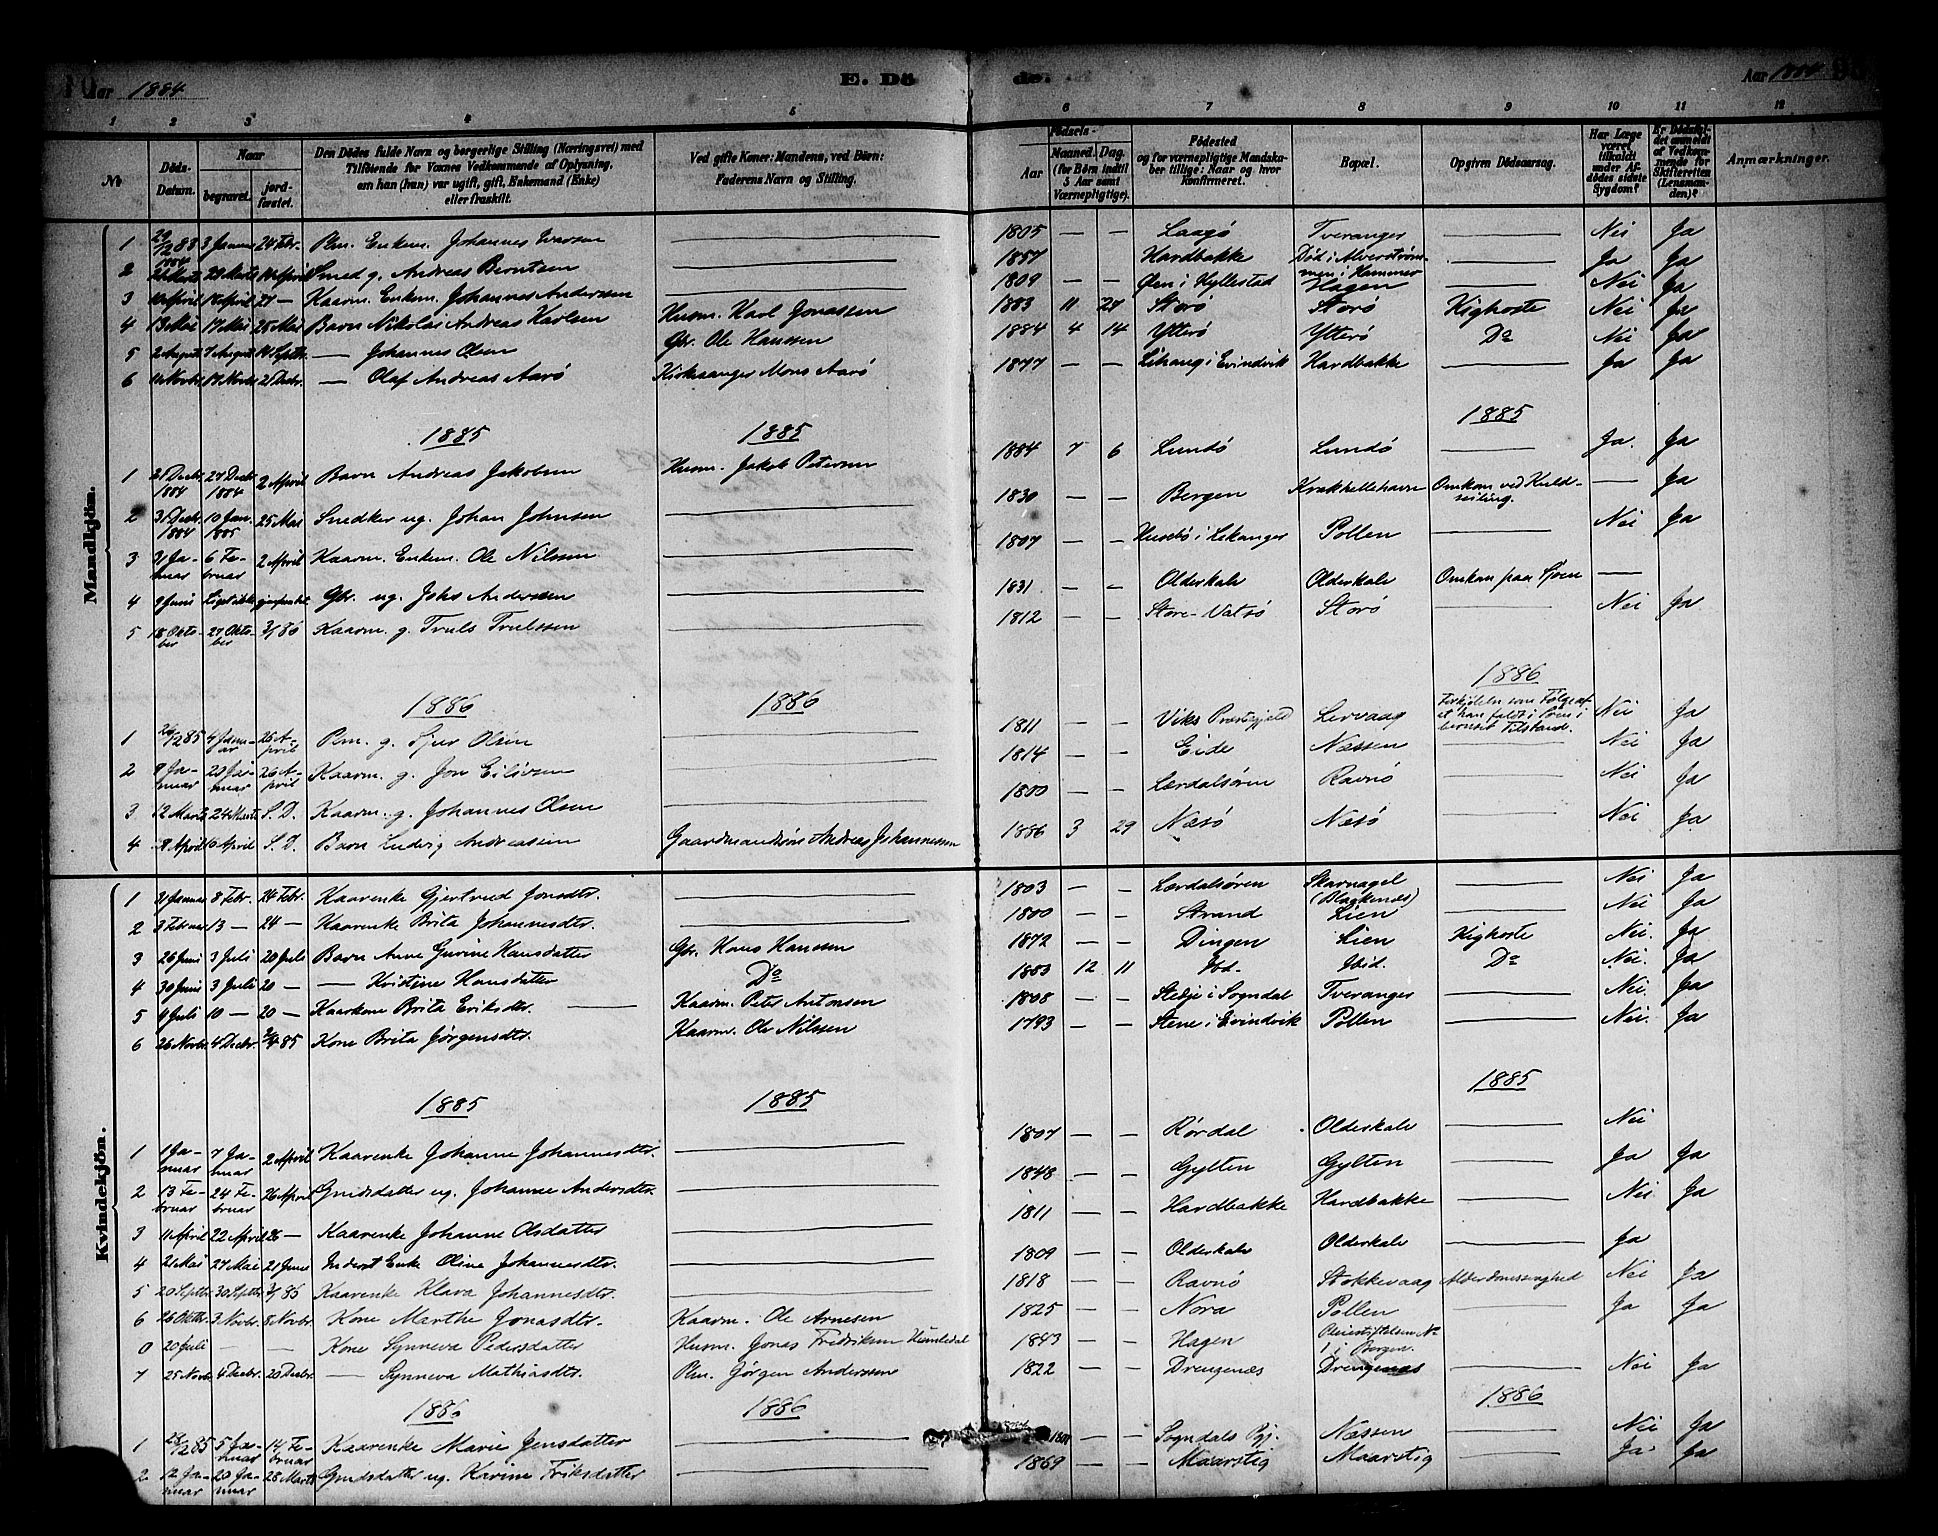 Aar 1884
E. Dö
de.
Aar 1884
1 2 3 4 5 6 7 8 9 10 11 12
No
Döds-Datum.
Naar
begravet.
jord-fæstet.
Den Dödes fulde Navn og borgerlige Stilling (Næringsvei) med Tilföiende for Voxnes Vedkommende af Oplysning, om han (hun) var ugift, gift, Enkemand (Enke) eller fraskilt.
Ved gifte Koner: Mandens, ved Börn: Faderens Navn og Stilling.
Födsels-
Aar
Maaned. Dag.
(for Börn indtil 5 Aar samt Værnepligtige).
Födested og for værnepligtige Mandskaber tillige: Naar og hvor konfirmeret.
Bopæl.
Opgiven Dödsaarsag.
Har Læge været tilkaldt under Afdödes sidste Sygdom?
Er Dödsfaldet anmeldt af Vedkommende for Skifteretten (Lensmanden)?
Anmærkninger.
Mandkjön.
1 29/12 83 3 Januar 24 Febr. Pm. Enkem. Johannes Ivarsen — 1805 — — Laagö Tveranger Nei Ja
2 1884 Marts 29 Marts 14 April Smed g. Andreas Berntsen — 1857 Hardbakke Död i Alverström-men i Hammer Ja Ja
3 April 18 April 27 — Kaarm. Enkem. Johannes Anderssen — 1809 — — Öen i Hyllestad Hagen — Nei Ja
4 13 Mai 17 Mai 25 Mai Barn Nikolai Andreas Karlsen Husm. Karl Jonassen 1883 11 24 Storö Storö Kighoste Nei Ja
5 2 August 7 August 14 Septbr. — Johannes Olsen Gbr. Ole Hanssen 1884 4 14 Ytterö Ytterö Do Nei Ja
6 Novbr 19 Novbr 21 Decbr. — Olaf Andreas Aarö Kirkesanger Mons Aarö 1877 — — Lihaug i Evindvik Hardbakke — Ja Ja
1885 1885 1885
1 21 Decbr. 1884 27 Decbr 1884 2 April Barn Andreas Jakobsen Husm. Jakob Petersen 1884 7 6 Lundö Lundö — Ja. Ja
2 31 Decbr. 1884 10 Jan. 1885 25 Mai Snedker ug. Johan Johnsen — 1830 — — Bergen Krakhellehavn Omkom ved Kuldseiling. — Ja
3 31 Januar 6 Februar 2 April Kaarm. Enkem. Ole Nilssen — 1807 — — Husebö i Lekanger Pollen — Nei Ja
4 9 Juni Liget ikke gjenfundet Gbr. ug. Johs Anderssen — 1831 — — Olderkale Olderkale Omkom paa Sjöen —
5 18 Oktober 27 Oktober 3/1 86 Kaarm. g. Truls Trulssen — 1812 — — Store-Vatsö Storö — Nei Ja
1886 1886 1886
1 26/12 85 4 Januar 26 April Pm. g. Sjur Olsen — 1811 Viks Præstegjeld Lervaag Forkjölelse som Fölge af at han faldt i Söen i beruset Tilstand. Nei Ja
2 9 Januar 20 Januar 26 April Kaarm. g. Jon Eilivsen — 1814 — — Eide Næssen — Nei Ja
3 12 Marts 24 Marts S. D. Kaarm. g. Johannes Olsen — 1800 — — Lærdalsören Ravnö — Nei Ja
4 9 April 10 April S. D. Barn Ludvig Andreassen Gaardmandssön Andreas Johannessen 1886 3 29 Næsö Næsö — Nei Ja
Kvindekjön.
1 21 Januar 8 Febr. 24 Febr. Kaarenke Gjertrud Jonsdtr. — 1803 — — Lærdalsören Skarnagel (Blaakenæs) — Nei Ja
2 3 Februar 13 — 24 — Kaarenke Brita Johannesdtr. — 1800 — — Strand Lien — Nei Ja
3 26 Juni 3 Juli 20 Juli Barn Anne Gurine Hansdatter Gbr. Hans Hanssen 1872 — — Dingen Lien Kighoste Nei. Ja
4 30 Juni 3 Juli 20 — — Kristine Hansdatter Do 1883 12 11 Ibd. Ibid. Do Nei. Ja
5 4 Juli 10 — 20 — Kaarkone Brita Eriksdtr. — Kaarm. Peter Antonsen 1808 — — Stedje i Sogndal Tveranger — Nei. Ja
6 26 Novbr. 4 Decbr. 2/4 85 Kone Brita Jørgensdtr. Kaarm. Ole Nilssen 1793 — — Stene i Evindvik Pollen — Nei. Ja
1885 1885 1885
1 1 Januar 7 Januar 2 April Kaarenke Johanne Johannesdtr. — 1807 — — Rørdal Olderkale — Nei
2 13 Februar 24 Februar 26 April Gmdsdatter ug. Johanne Andersdtr. — 1848 — — Gylten Gylten — Ja Ja
3 11 April 22 April 26 — Kaarenke Johanne Olsdatter — 1811 — — Hardbakke Hardbakke — Nei Ja
4 21 Mai 27 Mai 21 Juni Inderst Enke Oline Johannesdtr. — 1809 — — Olderkale Olderkale — Ja
5 20 Septbr. 30 Septbr. 3/1 86 Kaarenke Klara Johannesdtr. — 1818 — — Ravnö Stokkevaag Alderdomssvaghed Nei Ja
6 26 Oktbr. 3 Novbr. 8 Novbr. Kone Marthe Jonasdtr. Kaarm. Ole Arnesen 1825 — — Nora Pollen Ja Ja
0 20 Juli — — Kone Synneva Pedersdatter Husm. Jonas Fredriksen Humledal 1843 — — Hagen Pleiestiftelsen No 1 i Bergen.
7 25 Novbr. 4 Decbr. 20 Decbr. — Synneva Mathiasdtr. Pm. Jørgen Anderssen 1822 — — Drengenæs Drengenæs — Nei Ja
1886 1886 1886
1 28/12 85 5 Januar 14 Februar Kaarenke Marie Jensdatter — 1801 — — Sogndals Pgj. Næssen — Nei Ja
2 12 Januar 20 Januar 28 Marts Gmdsdatter ug. Karine Eriksdatter — 1869 — — Maarstig Maarstig — Ja Ja